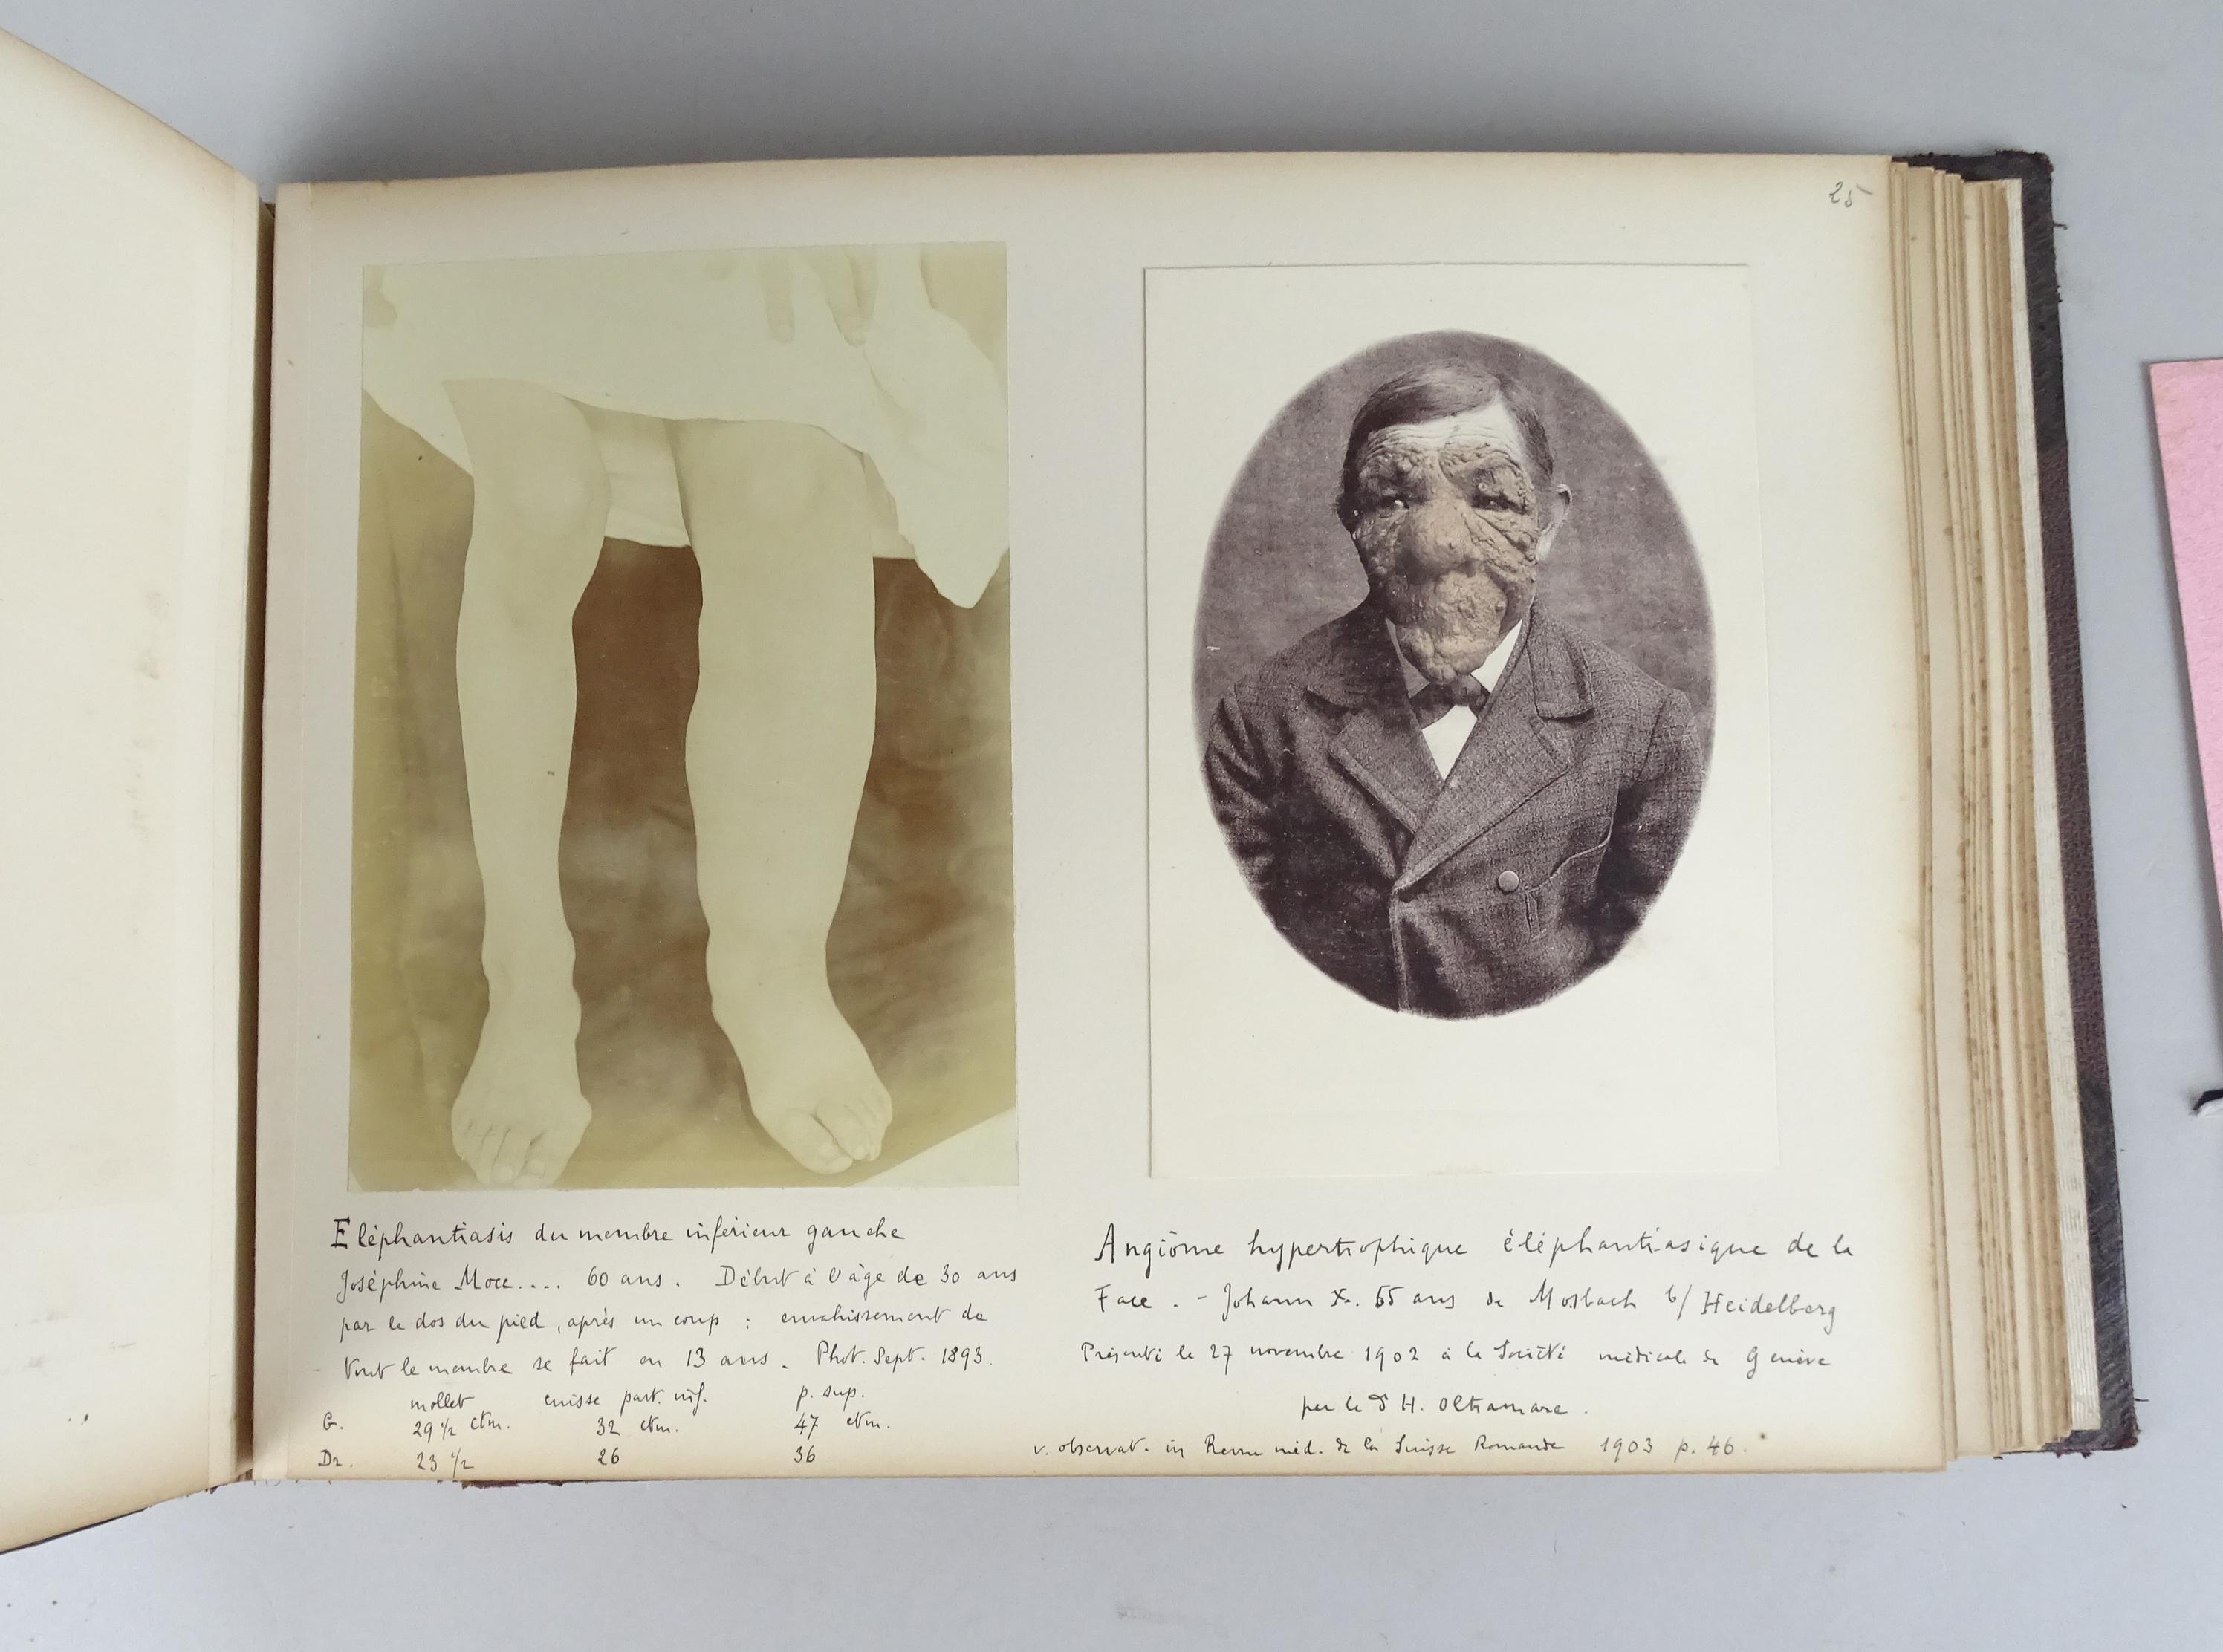 25
Eléphantiasis du membre inférieur gauche
Joséphine Mocc.... 60 ans. Début à l'âge de 30 ans
par le dos du pied, après un coup : envahissement de
tout le membre se fait en 13 ans. Phot. Sept. 1893.
mollet cuisse part. inf. p. sup.
G. 29 1/2 ctm. 32 ctm. 47 ctm.
Dr. 23 1/2 26 36
Angiome hypertrophique éléphantiasique de la
Face. - Johann X. 55 ans de Mosbach b/ Heidelberg
Présenté le 27 novembre 1902 à la Société médicale de Genève
par le Dr H. Oltramare.
v. observat. in Revue méd. de la Suisse Romande 1903 p. 46.